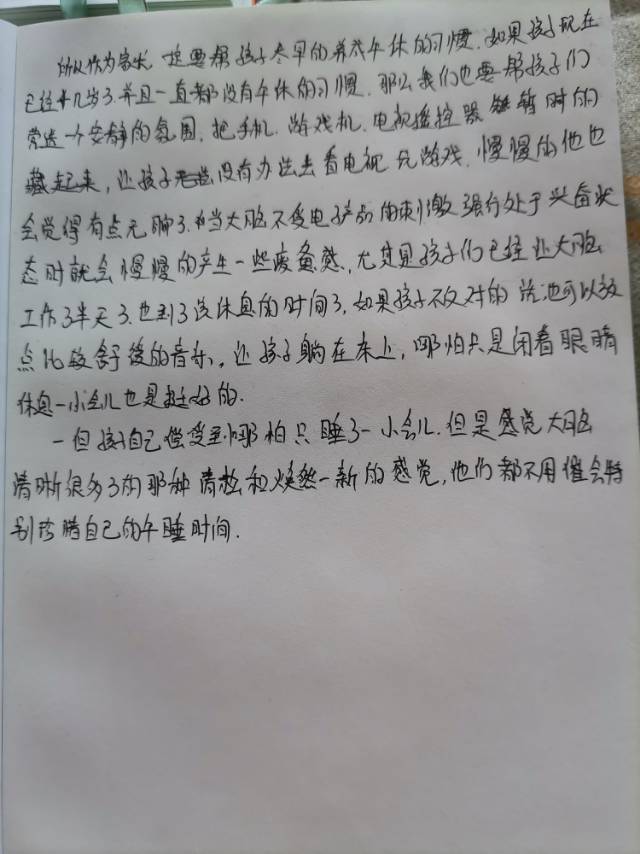 所以作为家长 一定要帮孩子尽早的养成午休的习惯. 如果孩子现在
已经十几岁了.并且一直都没有午休的习惯. 那么我们也要帮孩子们
营造一个安静的氛围. 把手机. 游戏机. 电视遥控器 暂时的
藏起来, 让孩子没有办法去看电视 元游戏. 慢慢的他也
会觉得有点无聊了.当大脑不受电子产品的刺激 强行处于兴奋状
态时就会慢慢的产生一些疲惫感. 尤其是孩子们已经让大脑
工作了半天了.也到了该休息的时间了. 如果孩子不反对的话也可以放
点比较舒缓的音乐. 让孩子躺在床上, 哪怕只是闭着眼睛
休息一小会儿也是挺好的.
一但孩子自己感受到哪怕只睡了一小会儿.但是感觉大脑
清晰很多了的那种清松和焕然一新的感觉, 他们都不用催会特
别珍腊自己的午睡时间.